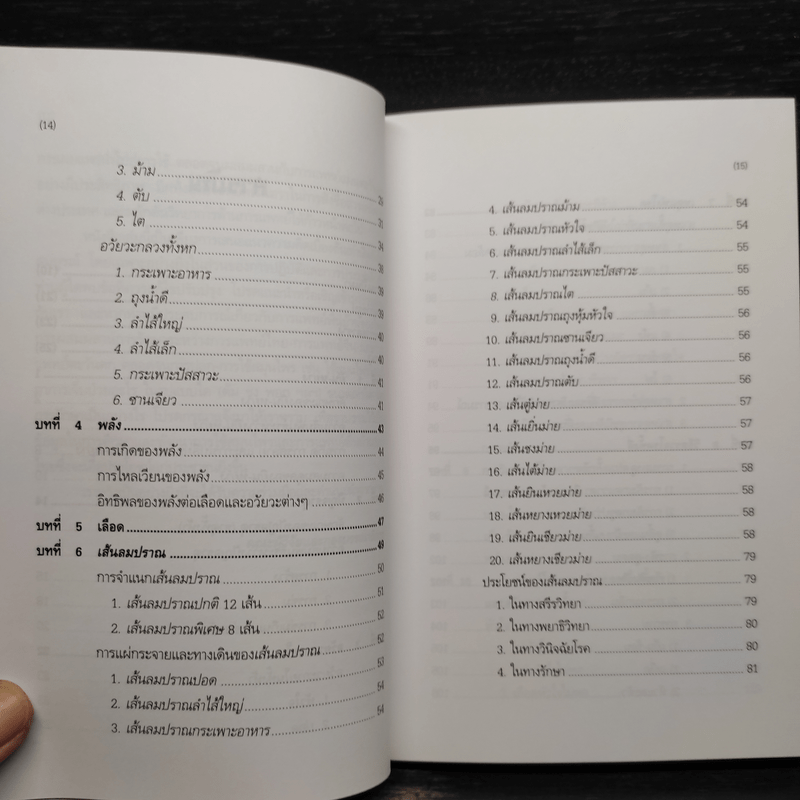 (14)
3. ม้าม
4. ตับ 26
5. ไต 31
อวัยวะกลวงทั้งหก 34
1. กระเพาะอาหาร 38
2. ถุงน้ำดี 39
3. ลำไส้ใหญ่ 39
4. ลำไส้เล็ก 40
5. กระเพาะปัสสาวะ 40
6. ซานเจียว 41
บทที่ 4 พลัง 43
การเกิดของพลัง 44
การไหลเวียนของพลัง 45
อิทธิพลของพลังต่อเลือดและอวัยวะต่างๆ 46
บทที่ 5 เลือด 47
บทที่ 6 เส้นลมปราณ 49
การจำแนกเส้นลมปราณ 50
1. เส้นลมปราณปกติ 12 เส้น 51
2. เส้นลมปราณพิเศษ 8 เส้น 52
การแผ่กระจายและทางเดินของเส้นลมปราณ 52
1. เส้นลมปราณปอด 53
2. เส้นลมปราณลำไส้ใหญ่ 54
3. เส้นลมปราณกระเพาะอาหาร 54
(15)
4. เส้นลมปราณม้าม 54
5. เส้นลมปราณหัวใจ 54
6. เส้นลมปราณลำไส้เล็ก 55
7. เส้นลมปราณกระเพาะปัสสาวะ 55
8. เส้นลมปราณไต 55
9. เส้นลมปราณถุงหุ้มหัวใจ 56
10. เส้นลมปราณซานเจียว 56
11. เส้นลมปราณถุงน้ำดี 56
12. เส้นลมปราณตับ 56
13. เส้นตู๋ม่าย 57
14. เส้นเยิ่นม่าย 57
15. เส้นชงม่าย 57
16. เส้นไต้ม่าย 58
17. เส้นยินเหวยม่าย 58
18. เส้นหยางเหวยม่าย 58
19. เส้นยินเชียวม่าย 58
20. เส้นหยางเชียวม่าย 79
ประโยชน์ของเส้นลมปราณ 79
1. ในทางสรีรวิทยา 79
2. ในทางพยาธิวิทยา 80
3. ในทางวินิจฉัยโรค 80
4. ในทางรักษา 81